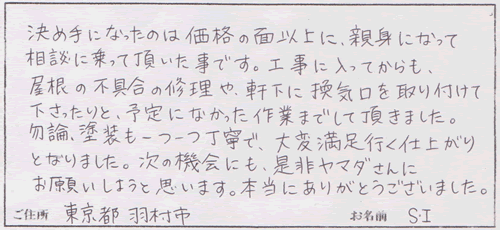 決め手になったのは価格の面以上に、親身になって
相談に乗って頂いた事です。工事に入ってからも、
屋根の不具合の修理や、軒下に換気口を取り付けて
下さったりと、予定になかった作業までして頂きました。
勿論、塗装も一つ一つ丁寧で、大変満足行く仕上がり
となりました。次の機会にも、是非ヤマダさんに
お願いしようと思います。本当にありがとうございました。
ご住所 東京都 羽村市 お名前 S・I